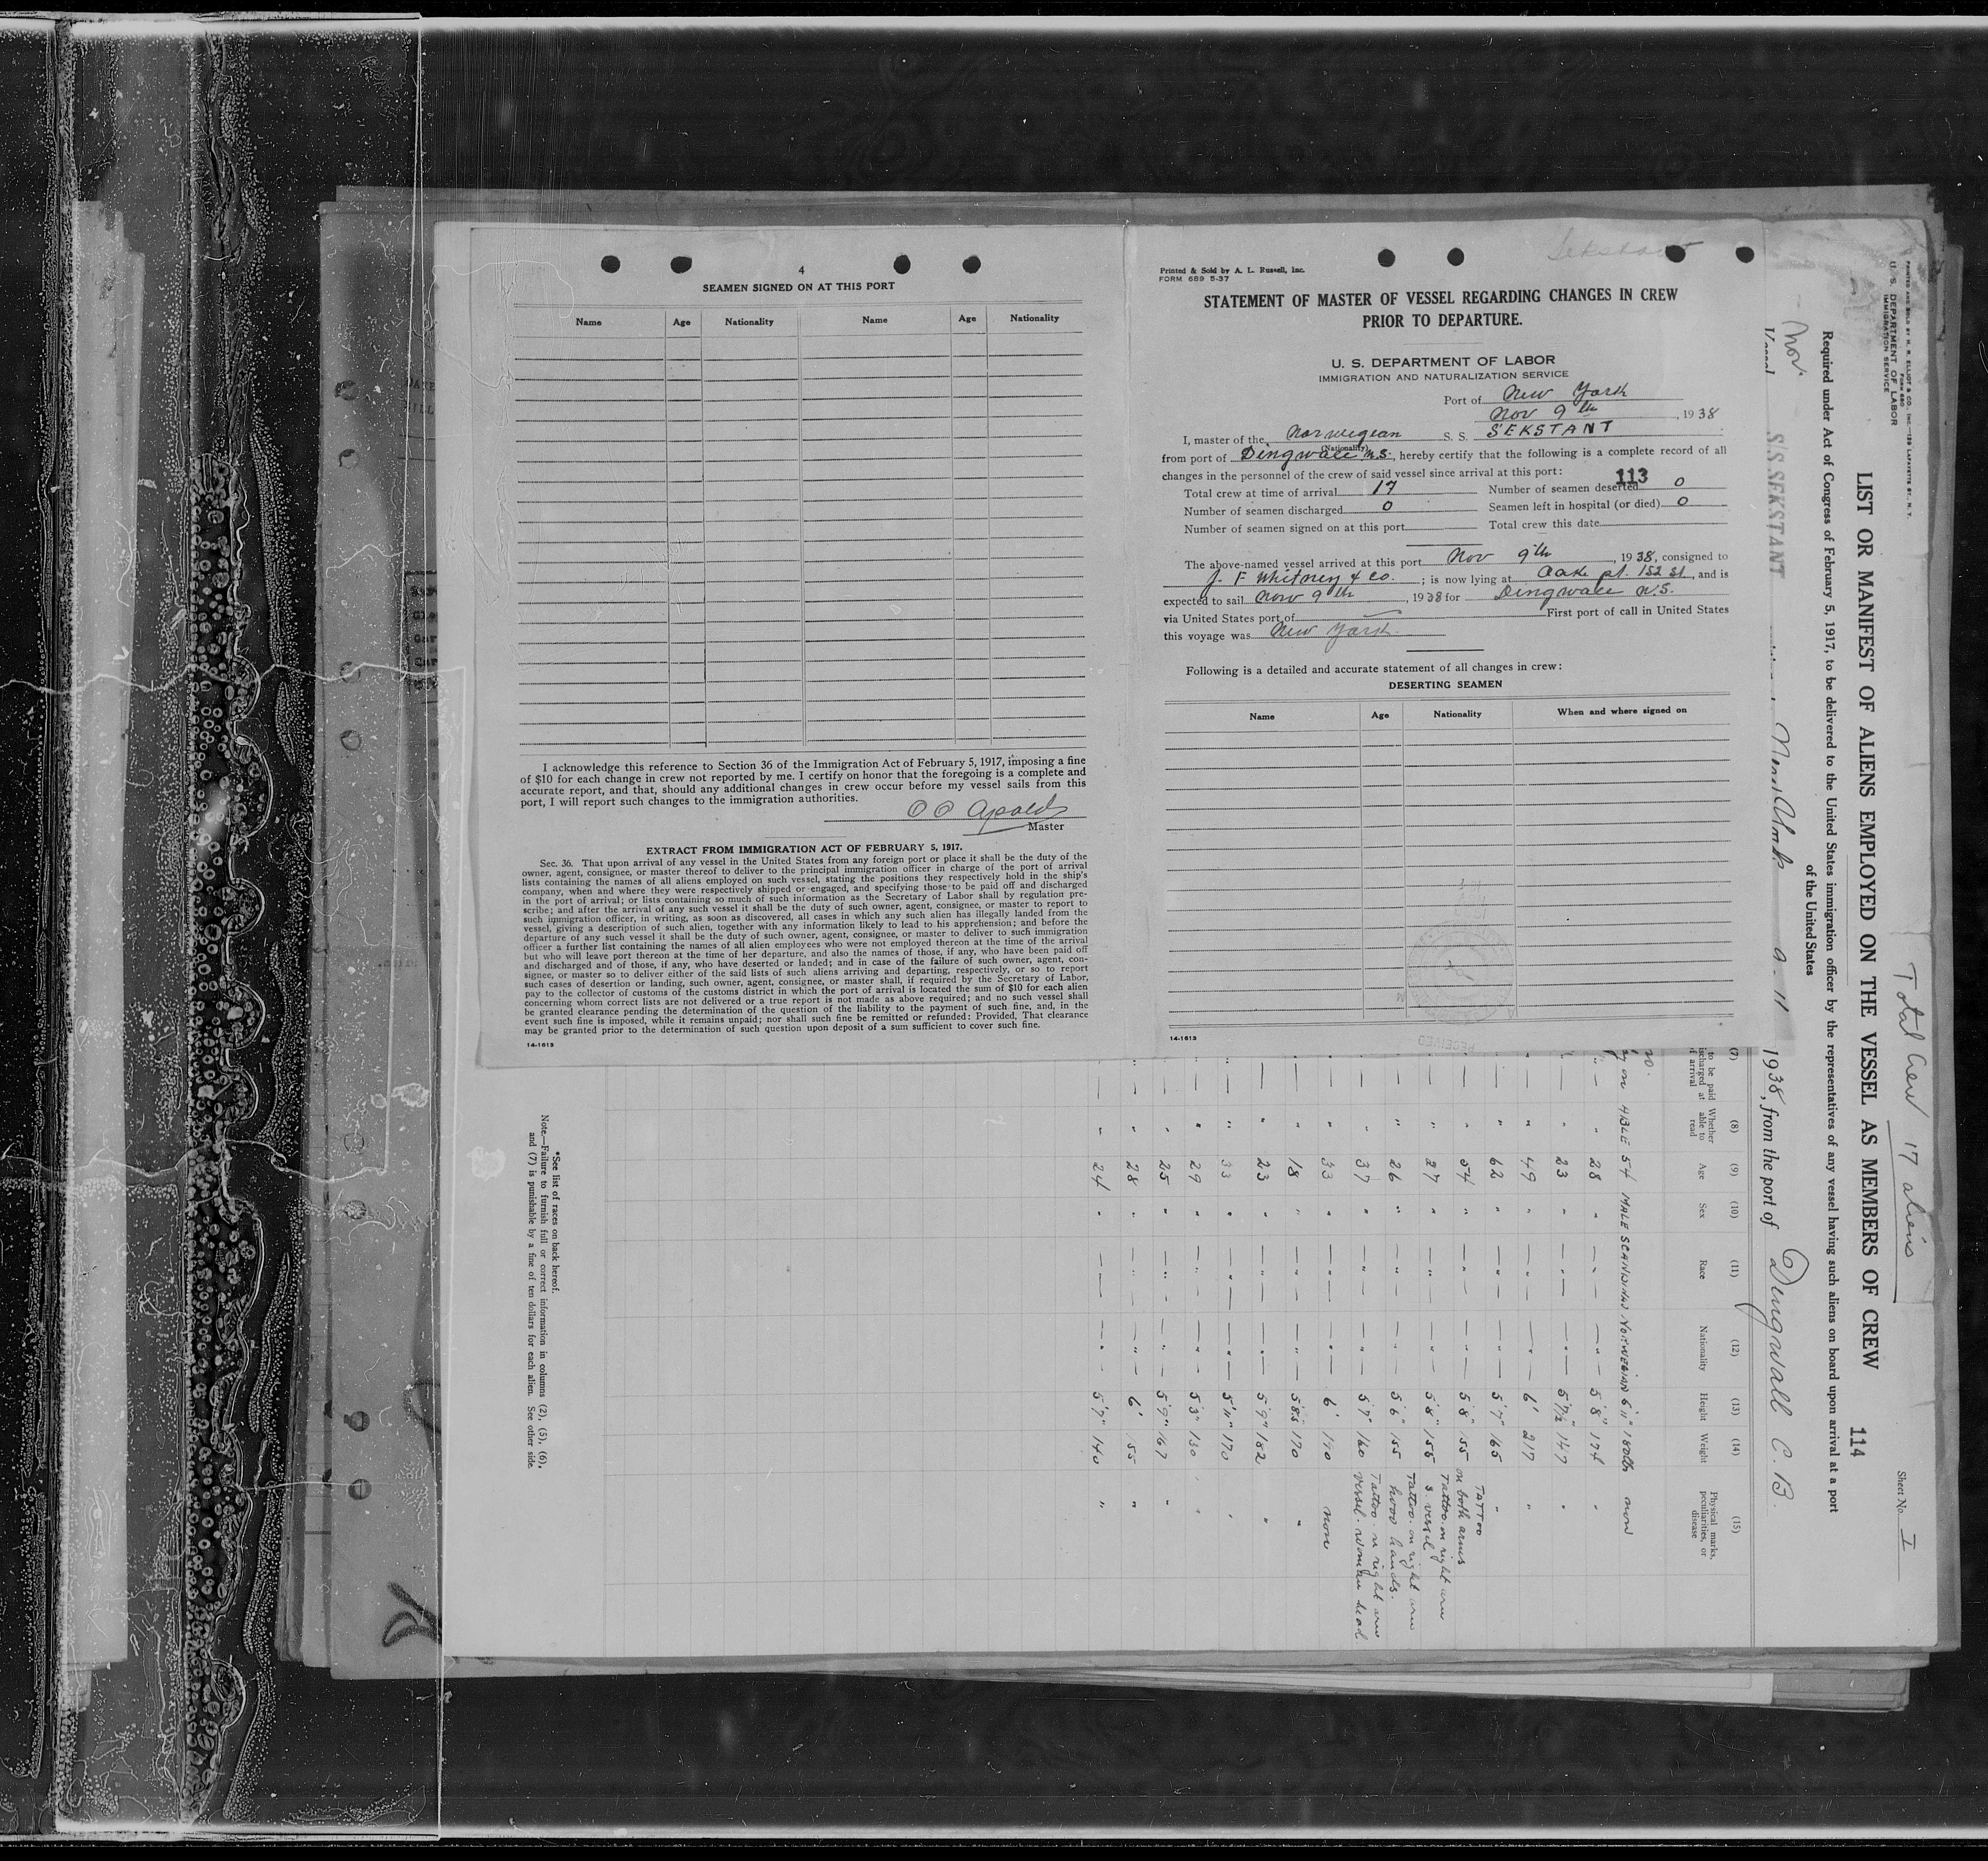 4
SEAMEN SIGNED ON AT THIS PORT
Name Age Nationality Name Age Nationality
I acknowledge this reference to Section 36 of the Immigration Act of February 5, 1917, imposing a fine
of $10 for each change in crew not reported by me. I certify on honor that the foregoing is a complete and
accurate report, and that, should any additional changes in crew occur before my vessel sails from this
port, I will report such changes to the immigration authorities.
Master
EXTRACT FROM IMMIGRATION ACT OF FEBRUARY 5, 1917.
Sec. 36. That upon arrival of any vessel in the United States from any foreign port or place it shall be the duty of the
owner, agent, consignee, or master thereof to deliver to the principal immigration officer in charge of the port of arrival
lists containing the names of all aliens employed on such vessel, stating the positions they respectively hold in the ship's
company, when and where they were respectively shipped or engaged, and specifying those to be paid off and discharged
in the port of arrival; or lists containing so much of such information as the Secretary of Labor shall by regulation pre-
scribe; and after the arrival of any such vessel it shall be the duty of such owner, agent, consignee, or master to report to
such immigration officer, in writing, as soon as discovered, all cases in which any such alien has illegally landed from the
vessel, giving a description of such alien, together with any information likely to lead to his apprehension; and before the
departure of any such vessel it shall be the duty of such owner, agent, consignee, or master to deliver to such immigration
officer a further list containing the names of all alien employees who were not employed thereon at the time of the arrival
but who will leave port thereon at the time of her departure, and also the names of those, if any, who have been paid off
and discharged and of those, if any, who have deserted or landed; and in case of the failure of such owner, agent, con-
signee, or master so to deliver either of the said lists of such aliens arriving and departing, respectively, or so to report
such cases of desertion or landing, such owner, agent, consignee, or master, shall, if required by the Secretary of Labor,
pay to the collector of customs of the customs district in which the port of arrival is located the sum of $10 for each alien
concerning whom correct lists are not delivered or a true report is not made as above required; and no such vessel shall
be granted clearance pending the determination of the question of the liability to the payment of such fine, and, in the
event such fine is imposed, while it remains unpaid; nor shall such fine be remitted or refunded: Provided, That clearance
may be granted prior to the determination of such question upon deposit of a sum sufficient to cover such fine.
14-1613
Sekstant
Printed & Sold by A. L. Russell, Inc.
FORM 689 5-37
STATEMENT OF MASTER OF VESSEL REGARDING CHANGES IN CREW
PRIOR TO DEPARTURE.
U. S. DEPARTMENT OF LABOR
IMMIGRATION AND NATURALIZATION SERVICE
Port of New York
Nov 9th, 1938
I, master of the Norwegian S. S. SEKSTANT
(Nationality)
from port of Dingwall N.S., hereby certify that the following is a complete record of all
changes in the personnel of the crew of said vessel since arrival at this port:
113
Total crew at time of arrival 17 Number of seamen deserted 0
Number of seamen discharged 0 Seamen left in hospital (or died) 0
Number of seamen signed on at this port Total crew this date
The above-named vessel arrived at this port Nov 9th, 1938, consigned to
J. F Whitney & Co.; is now lying at Oake pt. 152 st, and is
expected to sail Nov 9th, 1938 for Dingwall N.S.
via United States port of First port of call in United States
this voyage was New York
Following is a detailed and accurate statement of all changes in crew:
DESERTING SEAMEN
Name Age Nationality When and where signed on
14-1613
RECEIVED
PRINTED AND SOLD BY H. R. ELLIOT & CO., INC.
Form 680
U. S. DEPARTMENT OF LABOR
IMMIGRATION SERVICE
Total Crew 17 aliens
Sheet No. I
LIST OR MANIFEST OF ALIENS EMPLOYED ON THE VESSEL AS MEMBERS OF CREW
114
Required under Act of Congress of February 5, 1917, to be delivered to the United States immigration officer by the representatives of any vessel having such aliens on board upon arrival at a port
of the United States
Nor.
Vessel S/S. SEKSTANT New York 9-11 1938, from the port of Dingwall C. B.
(7) (8) (9) (10) (11) (12) (13) (14) (15)
to be paid
discharged at
arrival
Whether
able to
read
Age
Sex
Race
Nationality
Height
Weight
Physical marks,
peculiarities, or
disease
ABLE 54 MALE SCANDINAV NORWEGIAN 6'11" 180lbs non
" 28 " " " 5'8" 174 "
" 23 " " " 5'7½" 147 "
" 49 " " " 6' 217 "
" 62 " " " 5'7" 165 "
" 54 " " " 5'8" 155 TATTOO on both arms
" 27 " " " 5'8" 155 Tattoo. on right arm s. vessel
" 26 " " " 5'6" 155 Tattoo. on right arm hands.
" 37 " " " 5'7" 160 Tattoo. on right arm vessel. woman head
" 33 " " " 6' 190 non
" 18 " " " 170 "
" 23 " " " 5'9" 182 "
" 33 " " " 5'11" 170 "
" 29 " " " 5'3" 130 "
" 25 " " " 5'9" 167 "
" 28 " " " 6' 155 "
" 24 " " " 5'7" 140 "
*See list of races on back hereof.
Note.—Failure to furnish full or correct information in columns (2), (5), (6),
and (7) is punishable by a fine of ten dollars for each alien. See other side.